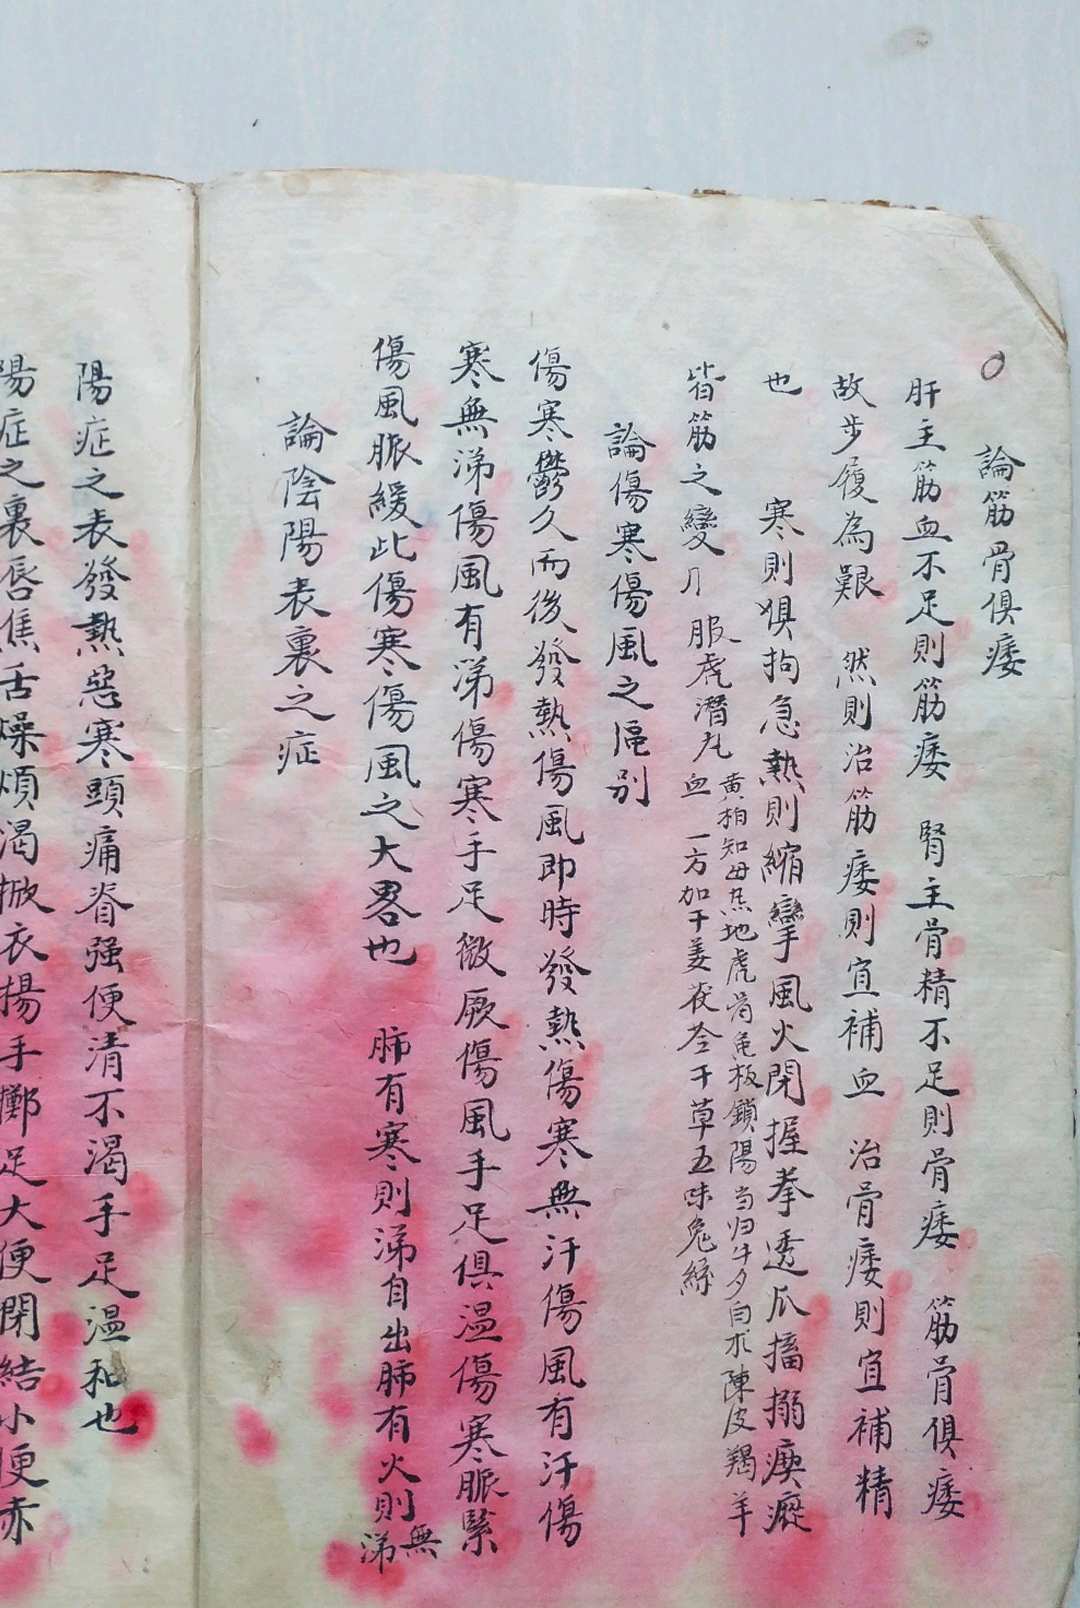 論筋骨俱痿
肝主筋血不足則筋痿 腎主骨精不足則骨痿 筋骨俱痿
故步履為艱 然則治筋痿則宜補血 治骨痿則宜補精
也 寒則俱拘急熱則縮攣風火閉握拳透爪搐搦瘈瘲
皆筋之變 服虎潛丸 黄柏知母熟地虎骨龟板鎖陽当归牛夕白朮陳皮羯羊
血 一方加干姜茯苓干草五味兔絲
論傷寒傷風之區别
傷寒鬱久而後發熱傷風即時發熱傷寒無汗傷風有汗傷
寒無涕傷風有涕傷寒手足微厥傷風手足俱温傷寒脈緊
傷風脈緩此傷寒傷風之大畧也 肺有寒則涕自出肺有火則無涕
論陰陽表裏之症
陽症之表發熱惡寒頭痛脊强便清不渴手足温和也
陽症之裏唇焦舌燥煩渴掀衣揚手擲足大便閉結小便赤